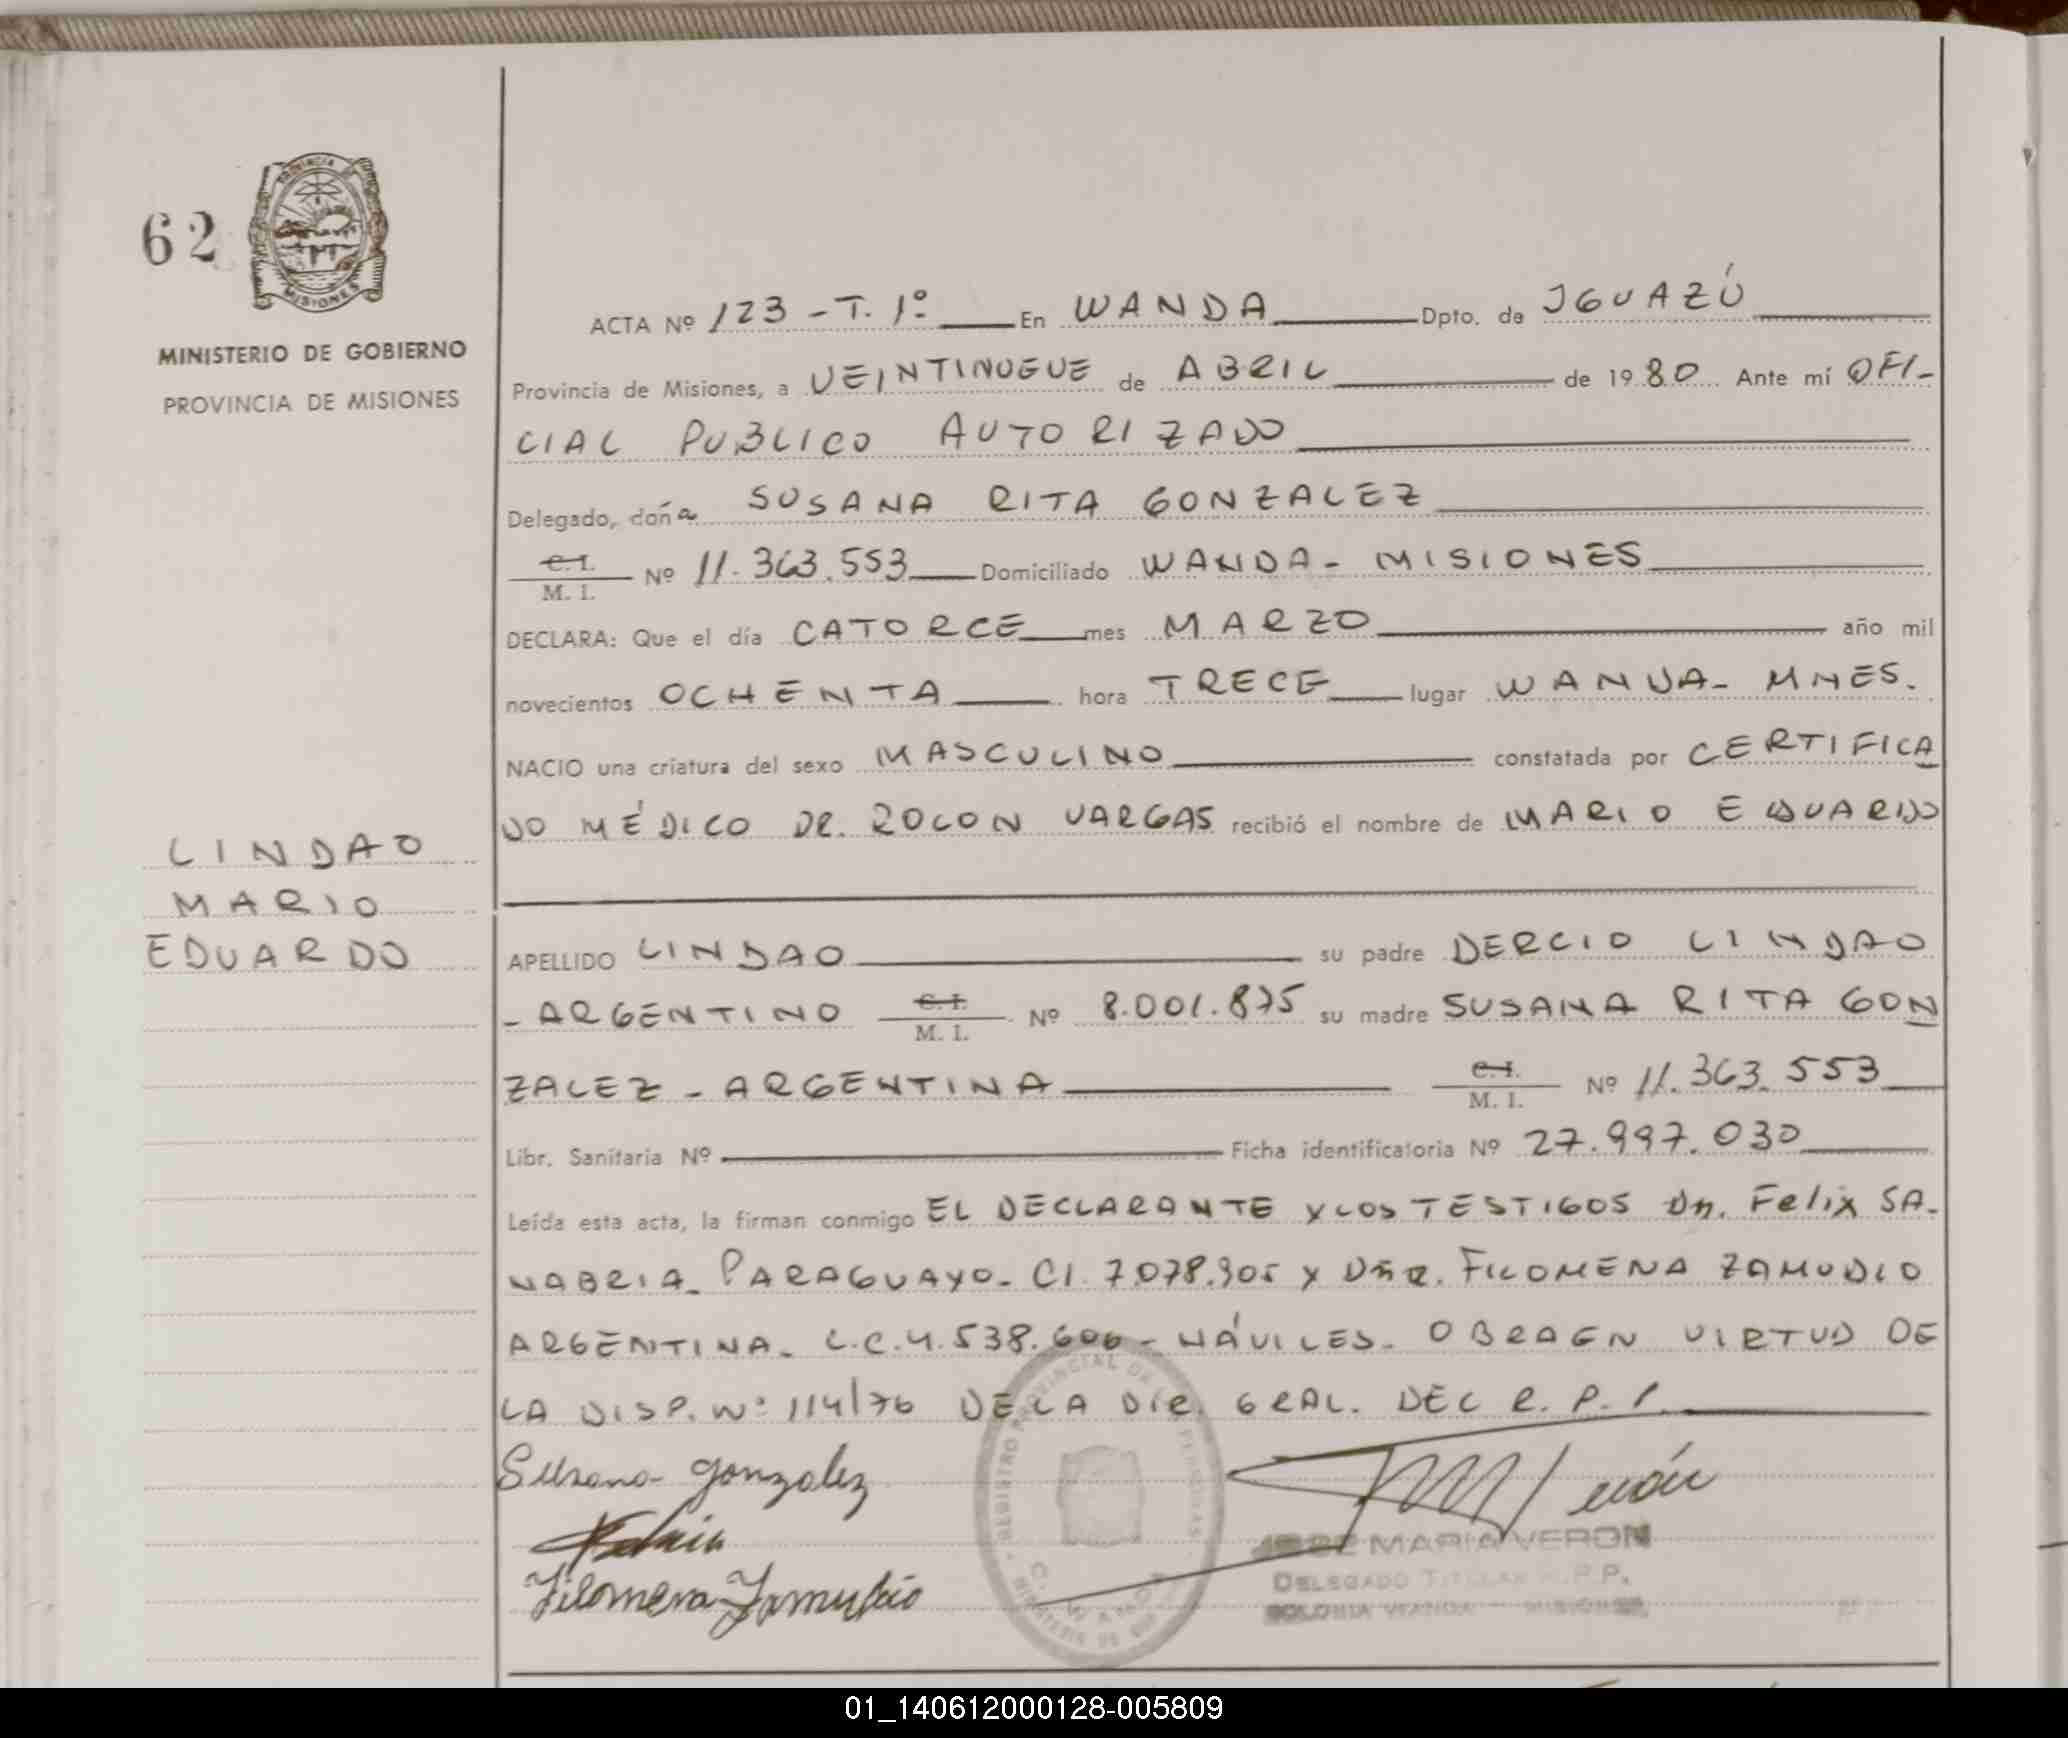 62
PROVINCIA
MISIONES
MINISTERIO DE GOBIERNO
PROVINCIA DE MISIONES
ACTA Nº 123 - T. 1º En WANDA Dpto. de IGUAZÚ
Provincia de Misiones, a VEINTINUEVE de ABRIL de 1980 Ante mí OFI-
CIAL PUBLICO AUTORIZADO
Delegado, doña SUSANA RITA GONZALEZ
C.I.
M. I. Nº 11.363.553 Domiciliado WANDA - MISIONES
DECLARA: Que el día CATORCE mes MARZO año mil
novecientos OCHENTA hora TRECE lugar WANDA - MNES.
NACIO una criatura del sexo MASCULINO constatada por CERTIFICA
DO MÉDICO DR. ROLON VARGAS recibió el nombre de MARIO EDUARDO
LINDAO
MARIO
EDUARDO
APELLIDO LINDAO su padre DERCIO LINDAO
- ARGENTINO C.I. M. I. Nº 8.001.875 su madre SUSANA RITA GON
ZALEZ - ARGENTINA C.I. M. I. Nº 11.363.553
Libr. Sanitaria Nº Ficha identificatoria Nº 27.997.030
Leída esta acta, la firman conmigo EL DECLARANTE Y LOS TESTIGOS Dn. Felix SA-
NABRIA - PARAGUAYO - CI. 7.078.905 y Dña. FILOMENA ZAMUDIO
ARGENTINA - L.C. 4.538.606 - HÁVILES - OBRA EN VIRTUD DE
LA DISP. Nº 114/76 DE LA DIR. GRAL. DEL R. P. P.
Susana Gonzalez
Filomena Zamudio
REGISTRO PROVINCIAL DE PERSONAS
WANDA
JOSE MARIA VERON
DELEGADO TITULAR R.P.P.
COLONIA WANDA - MISIONES
01_140612000128-005809